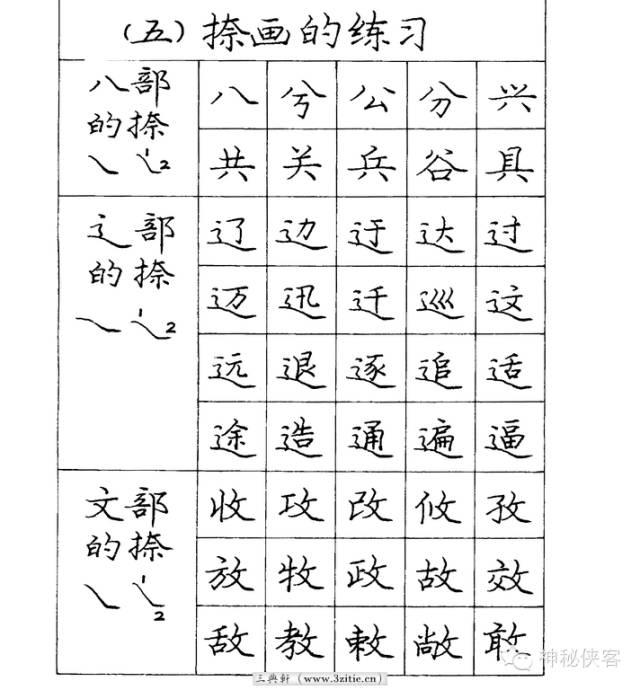 (五)捺画的练习
八部
的捺
1 2
八 兮 公 分 兴
共 关 兵 谷 具
辶部
的捺
1 2
辽 边 迂 达 过
迈 迅 迁 巡 这
远 退 逐 追 适
途 造 通 遍 逼
文部
的捺
1 2
收 攻 改 攸 孜
放 牧 政 故 效
敌 教 敕 敞 敢
神秘侠客
三典轩 (www.3zitie.cn)